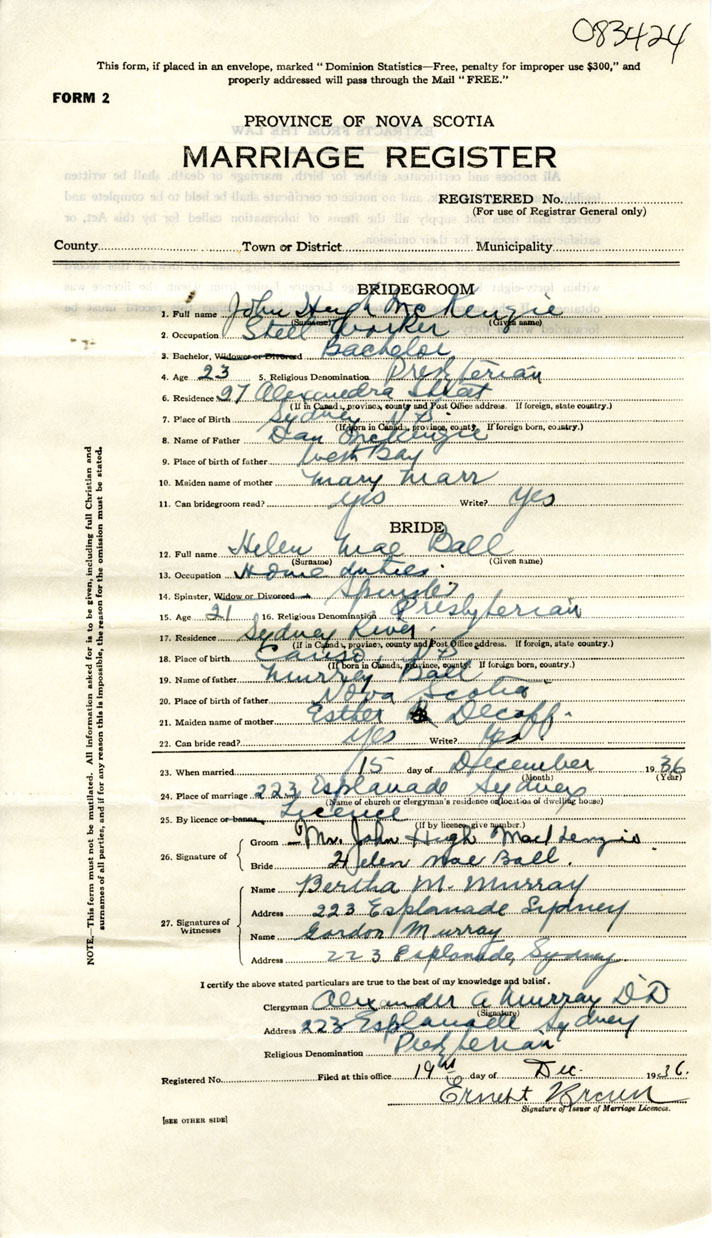 083424
This form, if placed in an envelope, marked "Dominion Statistics—Free, penalty for improper use $300," and
properly addressed will pass through the Mail "FREE."
FORM 2
PROVINCE OF NOVA SCOTIA
MARRIAGE REGISTER
REGISTERED No.
(For use of Registrar General only)
County Town or District Municipality
BRIDEGROOM
1. Full name John Hugh McKenzie
(Surname) (Given name)
2. Occupation Steel Worker
3. Bachelor, Widower or Divorced Bachelor
4. Age 23 5. Religious Denomination Presbyterian
6. Residence 97 Alexandra Street
(If in Canada, province, county and Post Office address. If foreign, state country.)
7. Place of Birth Sydney N S
(If born in Canada, province, county. If foreign born, country.)
8. Name of Father Dan McKenzie
9. Place of birth of father West Bay
10. Maiden name of mother Mary Marr
11. Can bridegroom read? yes Write? Yes
BRIDE
12. Full name Helen Mae Ball
(Surname) (Given name)
13. Occupation Home duties
14. Spinster, Widow or Divorced Spinster
15. Age 21 16. Religious Denomination Presbyterian
17. Residence Sydney River
(If in Canada, province, county and Post Office address. If foreign, state country.)
18. Place of birth Canso, N.S.
(If born in Canada, province, county. If foreign born, country.)
19. Name of father Murray Ball
20. Place of birth of father Nova Scotia
21. Maiden name of mother Esther Decoff.
22. Can bride read? yes Write? yes
23. When married 15 day of December 1936
(Month) (Year)
24. Place of marriage 223 Esplanade Sydney
(Name of church or clergyman's residence or location of dwelling house)
25. By licence or banns Licence
(If by licence, give number.)
26. Signature of
Groom Mr. John Hugh MacKenzie.
Bride Helen Mae Ball.
27. Signatures of
Witnesses
Name Bertha M. Murray
Address 223 Esplanade Sydney
Name Gordon Murray
Address 223 Esplanade, Sydney.
I certify the above stated particulars are true to the best of my knowledge and belief.
Clergyman Alexander A Murray DD
(Signature)
Address 223 Esplanade Sydney
Religious Denomination Presbyterian
Registered No. Filed at this office 19th day of Dec. 1936.
Ernest Brown
Signature of Issuer of Marriage Licences.
[SEE OTHER SIDE]
NOTE.—This form must not be mutilated. All information asked for is to be given, including full Christian and
surnames of all parties, and if for any reason this is impossible, the reason for the omission must be stated.